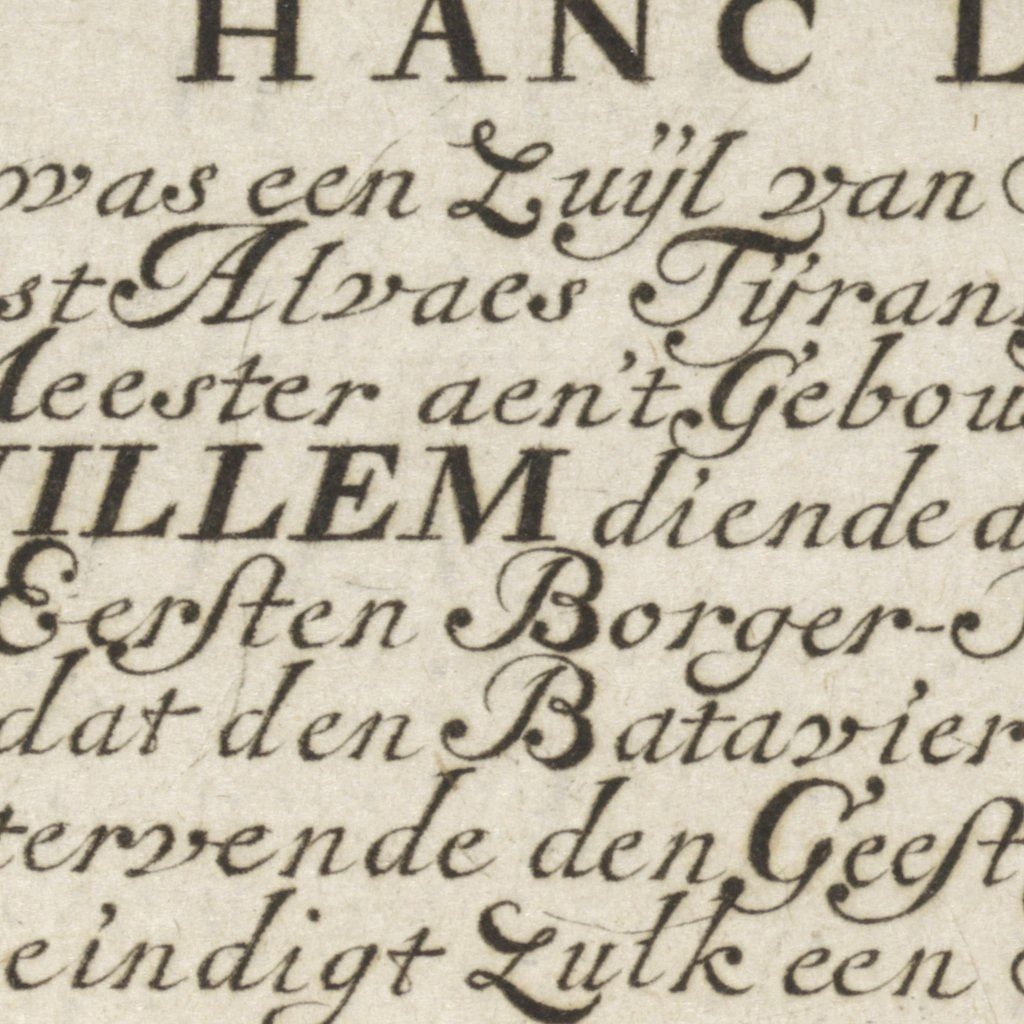 HANC
was een Zuÿl van
st Alvaes Tÿran
Meester aen't Gebou
WILLEM diende
Eersten Borger-
dat den Batavier
tervende den Geest
eindigt Zulk een